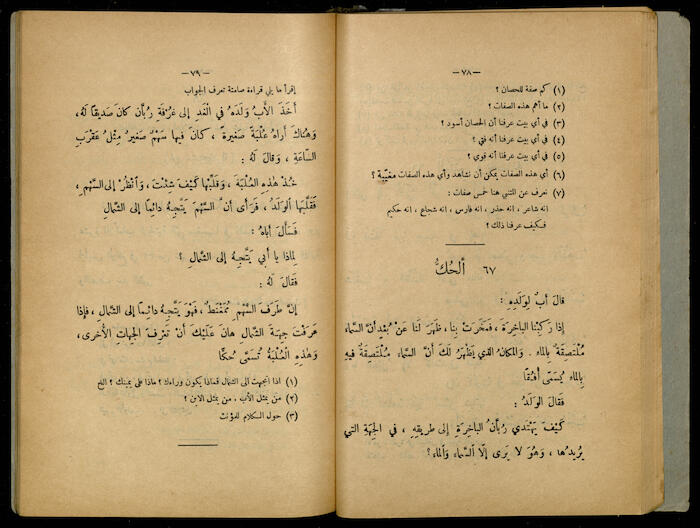 — ٧٨ —
(١) كم صفة للحصان ؟
(٢) ما أهم هذه الصفات ؟
(٣) في أي بيت عرفنا أن الحصان أسود ؟
(٤) في أي بيت عرفنا أنه فتي ؟
(٥) في أي بيت عرفنا أنه قوي ؟
(٦) أي هذه الصفات يمكن أن نشاهد وأي هذه الصفات مغيّبة ؟
(٧) نعرف عن المتنبي هنا خمس صفات :
انه شاعر ، انه حذر ، انه فارس ، انه شجاع ، انه حكيم
فكيف عرفنا ذلك ؟
٦٧ ألحُكُّ
قالَ أبٌ لِوَلَدِهِ :
إذا رَكِبْنا الباخِرَةَ ، فَمَخَرَتْ بِنا ، ظَهَرَ لَنا عَنْ بُعْدٍ أنَّ السَّماءَ
مُلْتَصِقَةٌ بِالماءِ . وَالمَكانُ الذي يَظْهَرُ لَكَ أنَّ السَّماءَ مُلْتَصِقَةٌ فيهِ
بِالماءِ يُسَمَّى أُفُقًا
فَقالَ الوَلَدُ :
كَيْفَ يَهْتَدي رُبَّانُ الباخِرَةِ إلى طَريقِهِ ، في الجِهَةِ التي
يُريدُها ، وَهُوَ لا يَرى إلّا ألسَّماءَ وَألماءَ ؟
— ٧٩ —
إقرأ ما يلي قراءة صامتة تعرف الجواب
أخَذَ الأبُ وَلَدَهُ في الغَدِ إلى غُرْفَةِ رُبَّانٍ كانَ صَديقًا لَهُ ،
وَهُناكَ أراهُ عُلْبَةً صَغيرَةً ، كانَ فيها سَهْمٌ صَغيرٌ مِثْلُ عَقْرَبِ
السَّاعَةِ ، وَقالَ لَهُ :
خُذْ هٰذِهِ العُلْبَةَ ، وَقَلِّبْها كَيْفَ شِئْتَ ، وَأنْظُرْ إلى السَّهْمِ ،
فَقَلَّبَها الوَلَدُ ، فَرَأى أنَّ السَّهْمَ يَتَّجِهُ دائِمًا إلى الشَّمالِ
فَسَألَ أباهُ :
لِماذا يا أبي يَتَّجِهُ إلى الشَّمالِ ؟
فَقالَ لَهُ :
إنَّ طَرَفَ السَّهْمِ مُمَغْنَطٌ ، فَهْوَ يَتَّجِهُ دائِمًا إلى الشَّمالِ ، فَإذا
عَرَفْتَ جِهَةَ الشَّمالِ هانَ عَلَيْكَ أنْ تَعْرِفَ الجِهاتِ الأُخْرى ،
وَهٰذِهِ العُلْبَةُ تُسَمَّى حُكًّا
(١) اذا اتجهت الى الشمال فماذا يكون وراءك ؟ ماذا على يمينك ؟ الخ
(٢) من يمثل الأب ، من يمثل الابن ؟
(٣) حول الكلام للمؤنث